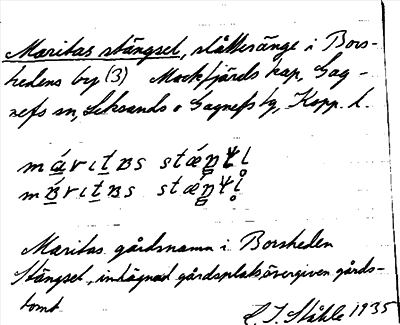 Maritas stängsel, slåtteränge i Bors-
hedens by (3) Mockfjärds kap, Gag-
nefs sn, Leksands o Gagnefs tg, Kopp. l.
Maritas gårdsnamn i Borsheden
Stängsel, inhägnad gårdsplats, övergiven gårds-
tomt
L. I. Ståhle 1935